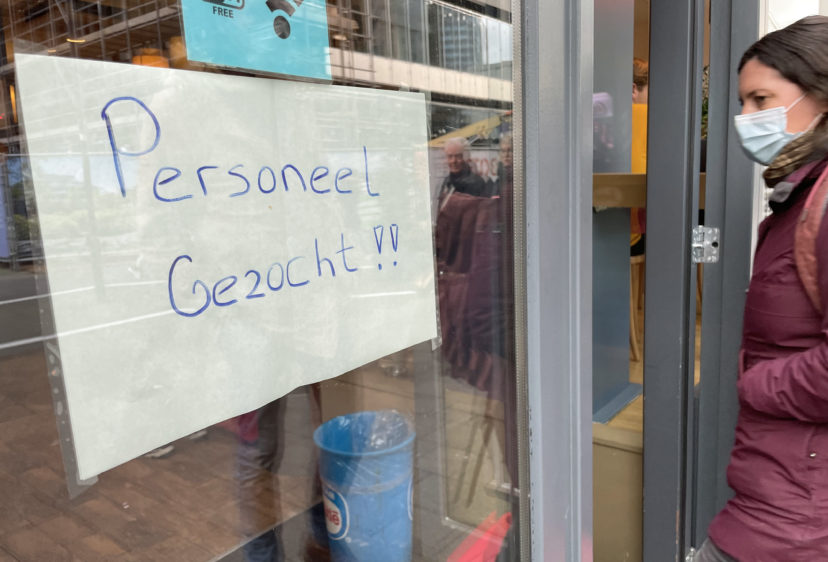 FREE
Personeel
Gezocht!!